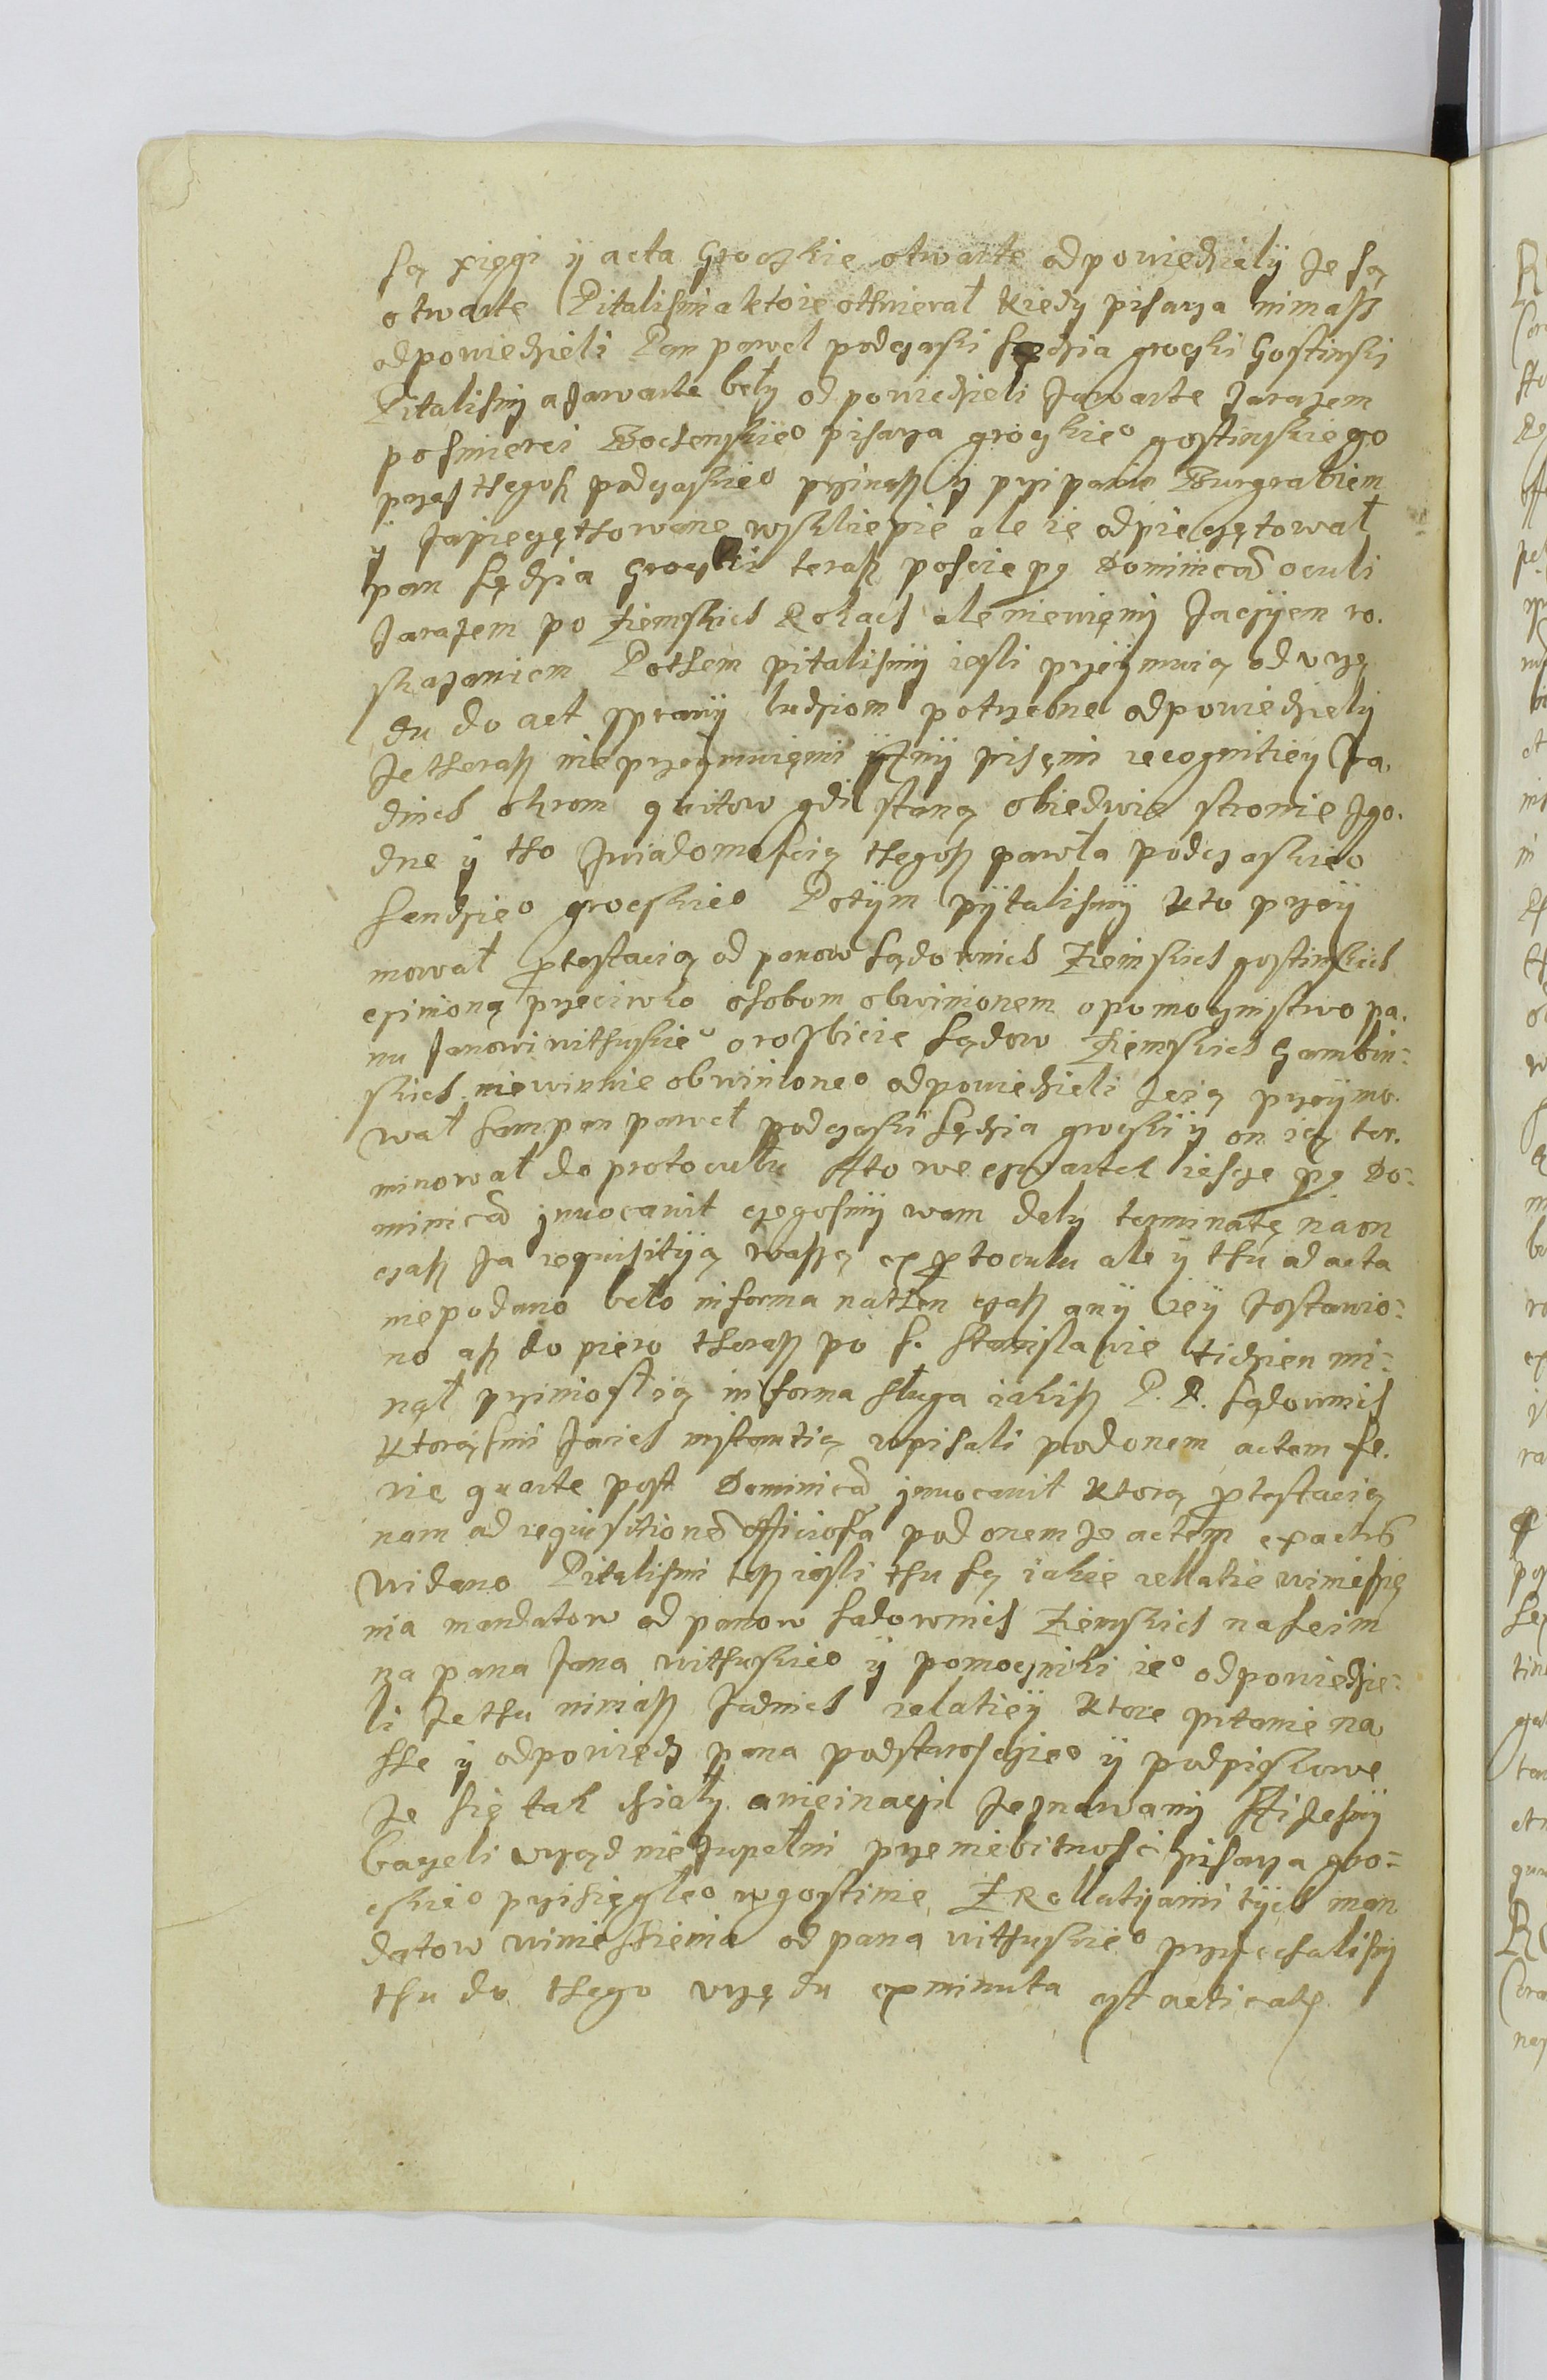 są xięgi ÿ acta Groczkie otwarte odpowiedzielÿ ze są
otwarte Pitalismi a ktoie othwierał kiedy pisarza nimasz
odpowiedzieli Pan pawel podczaski sędzia groczki Gostinski
Pitalismy a zawarte beły odpowiedzieli zawarte zarazem
po smierci Bochenskie⁰ pisarza groczkie⁰ gostinskiego
przes thegosz podczaskie⁰ przinasz ÿ przi panie Burgrabiem
ÿ zapieczęthowane wsklepie ale ie odpieczętował
pan sędzia Groczki terasz poscie pg Dominicā oculi
zarazem po ziemskich Rokach ale niewięmÿ zaczÿem ro-
skazaniem Pothem pitalismÿ iesli przÿÿmuią od urzę
du do act sprawÿ ludziom potrzebne odpowiedzielÿ
ze therasz nie przÿmuięmi ÿ nÿ pisęmi recognitieÿ za-
dnich okrom quitow gdi staną obiedwie stronie zgo-
dne ÿ tho zwiadomoscią thegosz pawła podczaskieo
sendzie⁰ groczskie⁰ Potÿm pÿtalismÿ kto przÿÿ
mował protestacią od panow sądownich ziemskich gostinskich
czinioną przeciwko osobom obwinionem o pomocznistwo pa-
nu Janowi withuskie⁰ o rozbicie sądow ziemskich Gambin=
skich niewinnie obwinione⁰ odpowiedzieli ze ią przÿimo-
wał sam pan paweł podczaski sędzia groczkiÿ on ią ter-
minował do protocułu A to we czwartek iescze pg Do=
minicā jnuocauit czegosmÿ wam dalÿ terminatę na on
czasz za requisitÿą waszą ex protoculu ale ÿ thu ad acta
nie podano beło in forma nathen czasz anÿ ieÿ zostawio=
no asz do piero therasz po s. Stanisławie tidzien mi=
nął prziniosł ią in forma sługa iakisz P. P. sądownich
ktorąsmi zaich instantią wpisali pod onem actem fe-
rie quarte post Dominicā jnuocauit ktorą protestacią
nam ad requisitionē officiosā pod onemze actem ex actis
widano Pitalismi tesz iesli thu są iakie rellatie winiesię
nia mandatow od panow sadownich ziemskich na seim
na pana Jana withuskieo ÿ pomoczniki ie⁰ odpowiedzie=
li ze thu nimasz żadnich relatieÿ ktore pitanie na
sse ÿ odpowiedz pana podstarosczie⁰ ÿ podpiskowe
ze się tak działÿ a nieinaczi zeznawamÿ
baczeli urząd niezupełni prze niebitnosc pisarza gro=
czkie⁰ przisięgłe⁰ w gostinie z Rellatÿami tÿch man
datow winiessienia od pana withuskie⁰ przyiechalismy
thu do thego urzędu ex minuta est acticatū